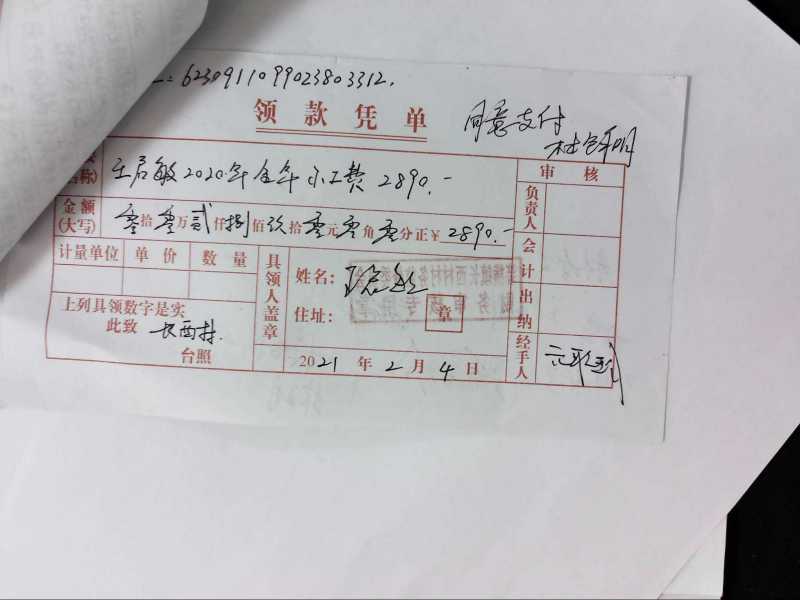 : 6230911099023803312.
领款凭单
同意支付
称)
王启敏2020年全年小工费 2890.-
审核
金额(大写)
零拾零万贰仟捌佰玖拾零元零角零分正¥2890.-
计量单位 单价 数量
上列具领数字是实
此致 长西村
台照
具领人盖章
姓名: 王启敏
住址:
章
2021年2月4日
负责人
会计
出纳
经手人